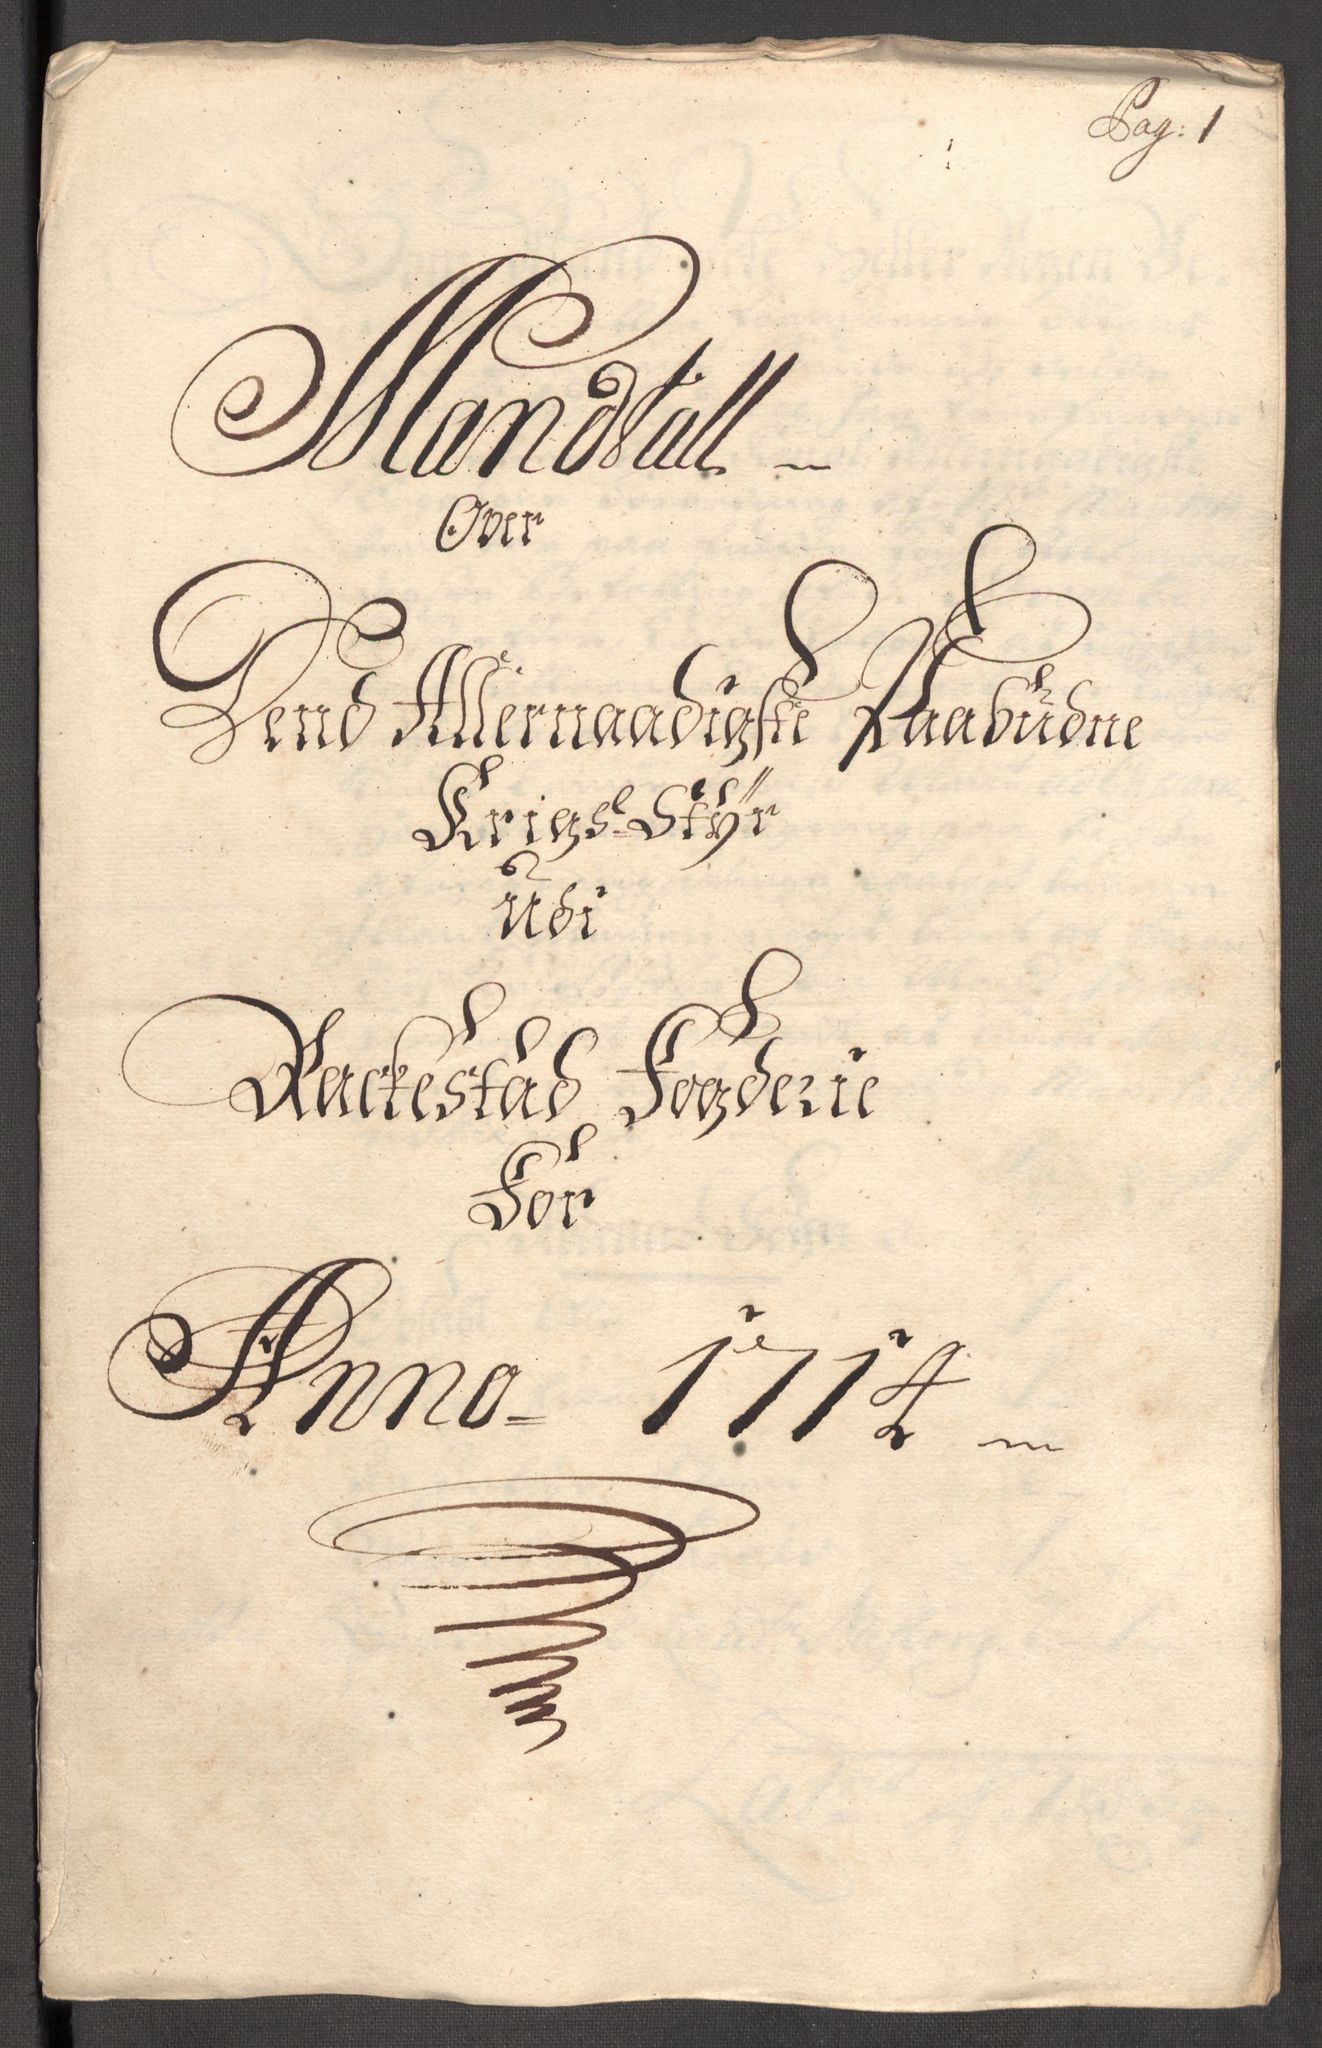 Pag: 1
Mandtall
Over
Dend Allernaadigste Paabudne
Krigs-Styr
Udi
Rackestad Fogderie
For
Anno 1714